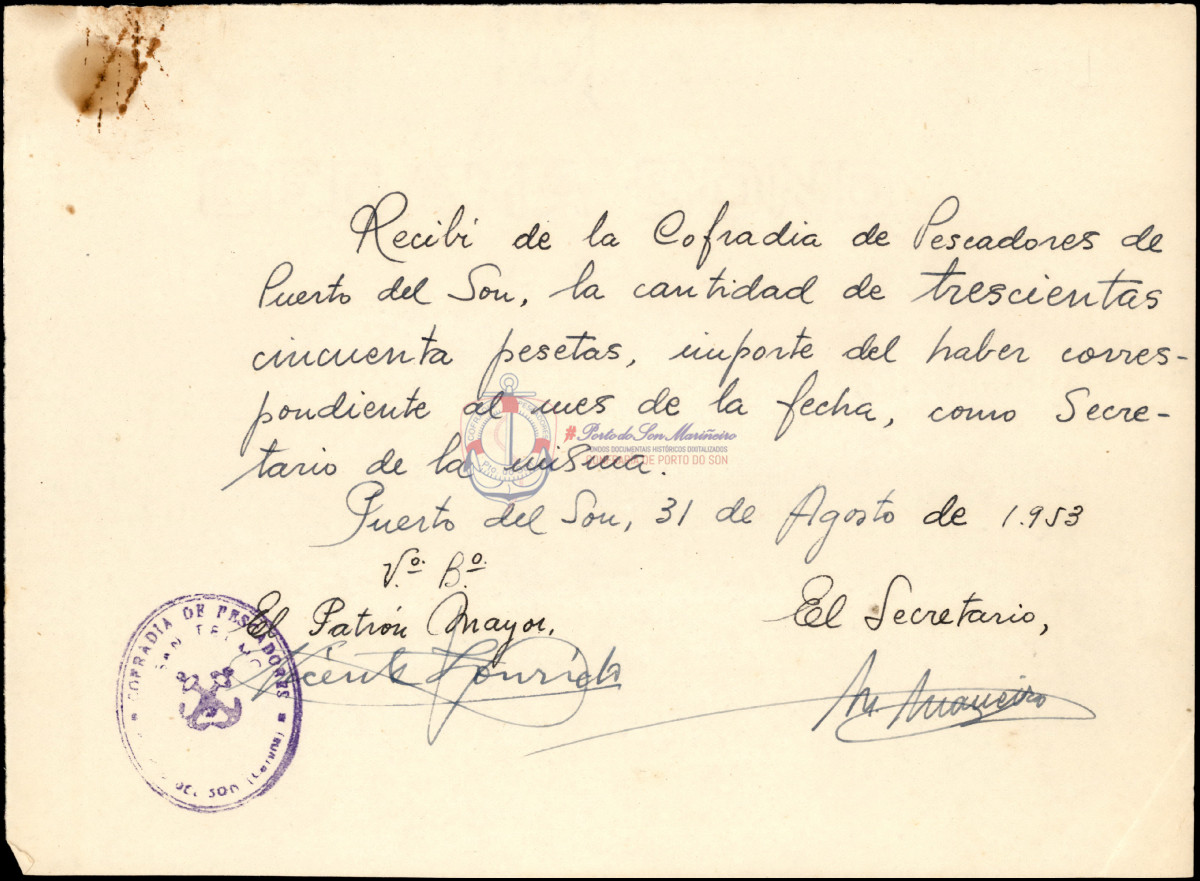 Recibí de la Cofradia de Pescadores de
Puerto del Son, la cantidad de trescientas
cincuenta pesetas, importe del haber corres-
pondiente al mes de la fecha, como Secre-
tario de la misma.
#Porto do Son Mariñeiro
FONDOS DOCUMENTAIS HISTÓRICOS DIXITALIZADOS
CONFRARÍA DE PORTO DO SON
Puerto del Son, 31 de Agosto de 1.953
Vº. Bº.
El Patrón Mayor,
El Secretario,
Vicente
M. Maneiro
COFRADIA DE PESCADORES
SAN TELMO
DEL SON